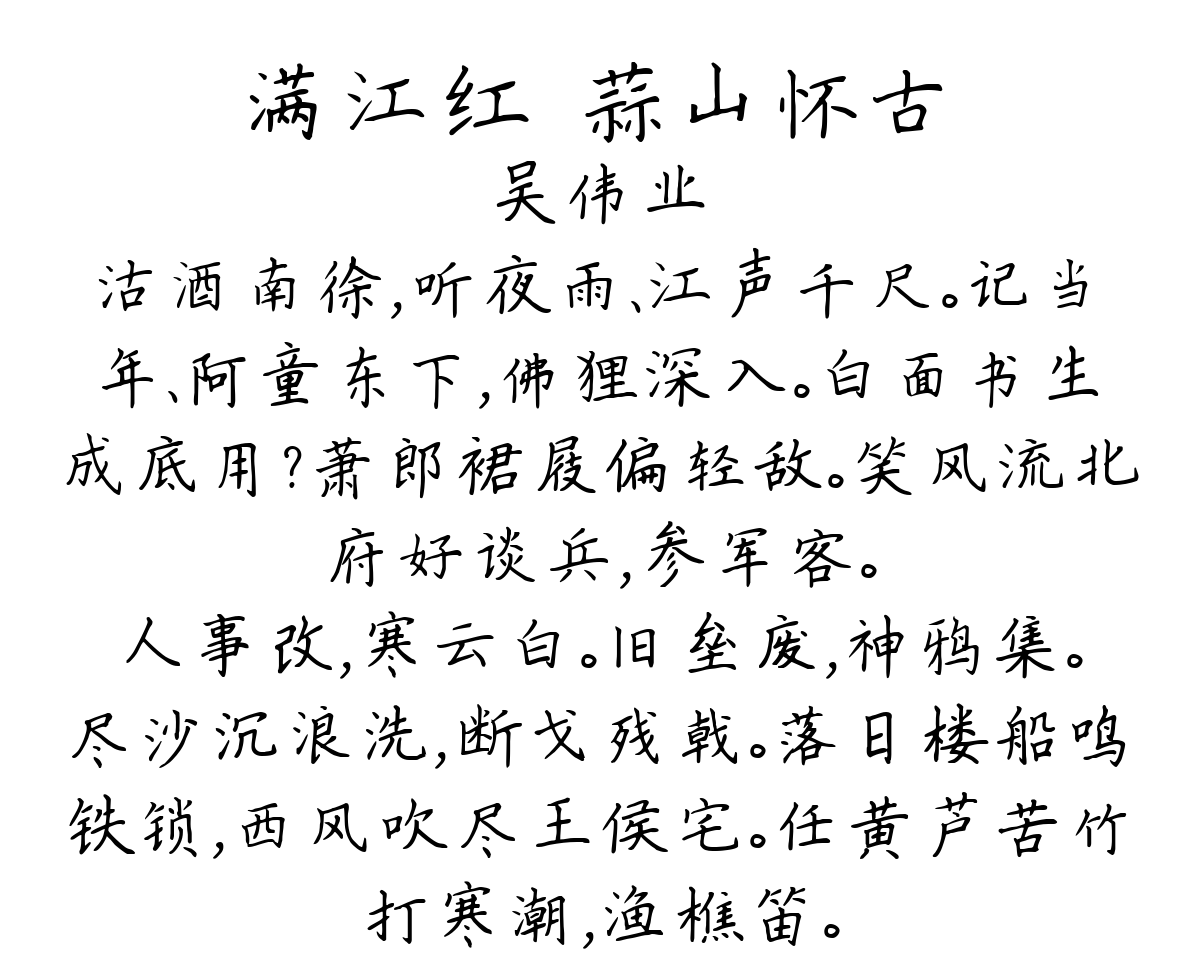 满江红 蒜山怀古
吴伟业
沽酒南徐,听夜雨、江声千尺。记当
年、阿童东下,佛狸深入。白面书生
成底用?萧郎裙屐偏轻敌。笑风流北
府好谈兵,参军客。
人事改,寒云白。旧垒废,神鸦集。
尽沙沉浪洗,断戈残戟。落日楼船鸣
铁锁,西风吹尽王侯宅。任黄芦苦竹
打寒潮,渔樵笛。